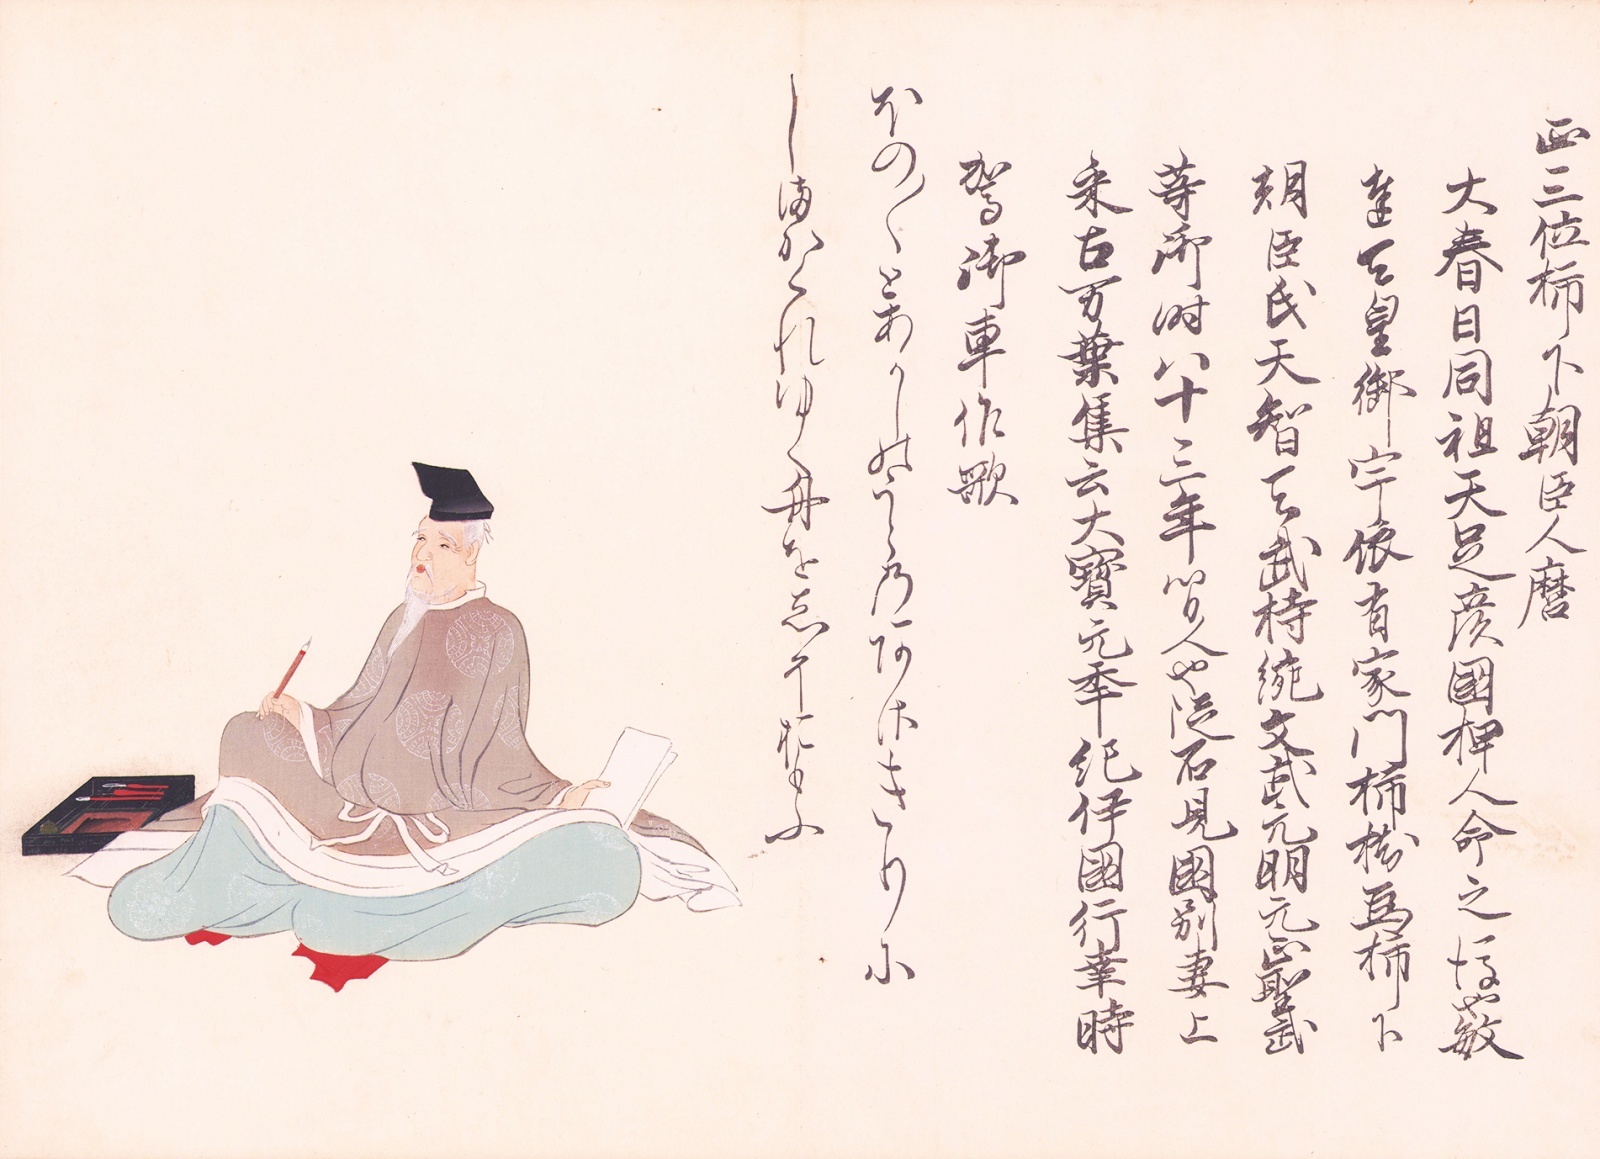 正三位柿下朝臣人麿
大春日同祖天足彦國押人命之後也敏
達天皇御宇依有家門柿樹為柿下
朝臣氏天智天武持統文武元明元正聖武
等御時八十三年間人也従石見國別妻上
来古万葉集云大寳元年紀伊國行幸時
駕御車作歌
ほの／＼とあかしのうらのあさきりに
しまかくれゆく舟をしそおもふ